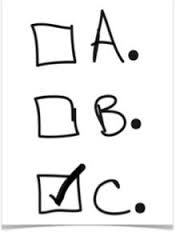 A.
B.
C.